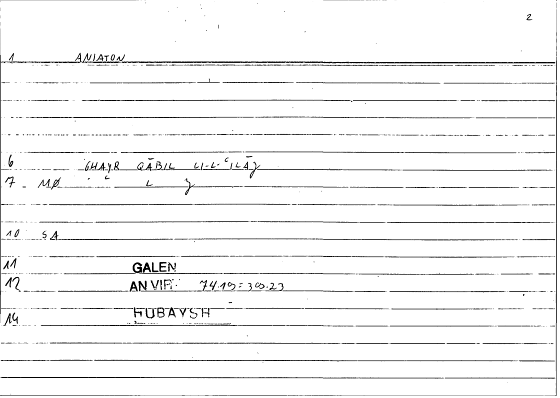 2
1 ANIATON
6 GHAYR QĀBIL LI-L-ʿILĀJ
7 - MØ ʿ L J
10 SA
11 GALEN
12 AN VIR. 74.19 = 300.23
14 ḤUBAYSH